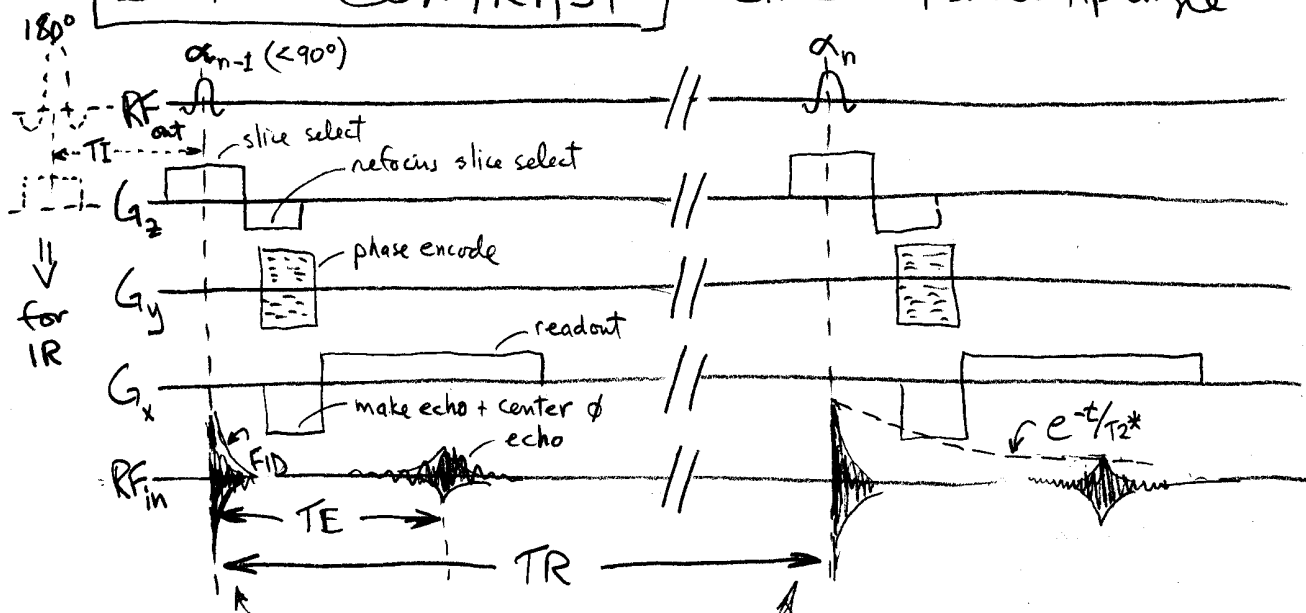 CONTRAST
angle
180°
αn-1 (<90°)
αn
RFout
TI
slice select
refocus slice select
Gz
⇓
for
IR
phase encode
Gy
readout
Gx
make echo + center ϕ
echo
FID
e^-t/T2*
RFin
TE
TR